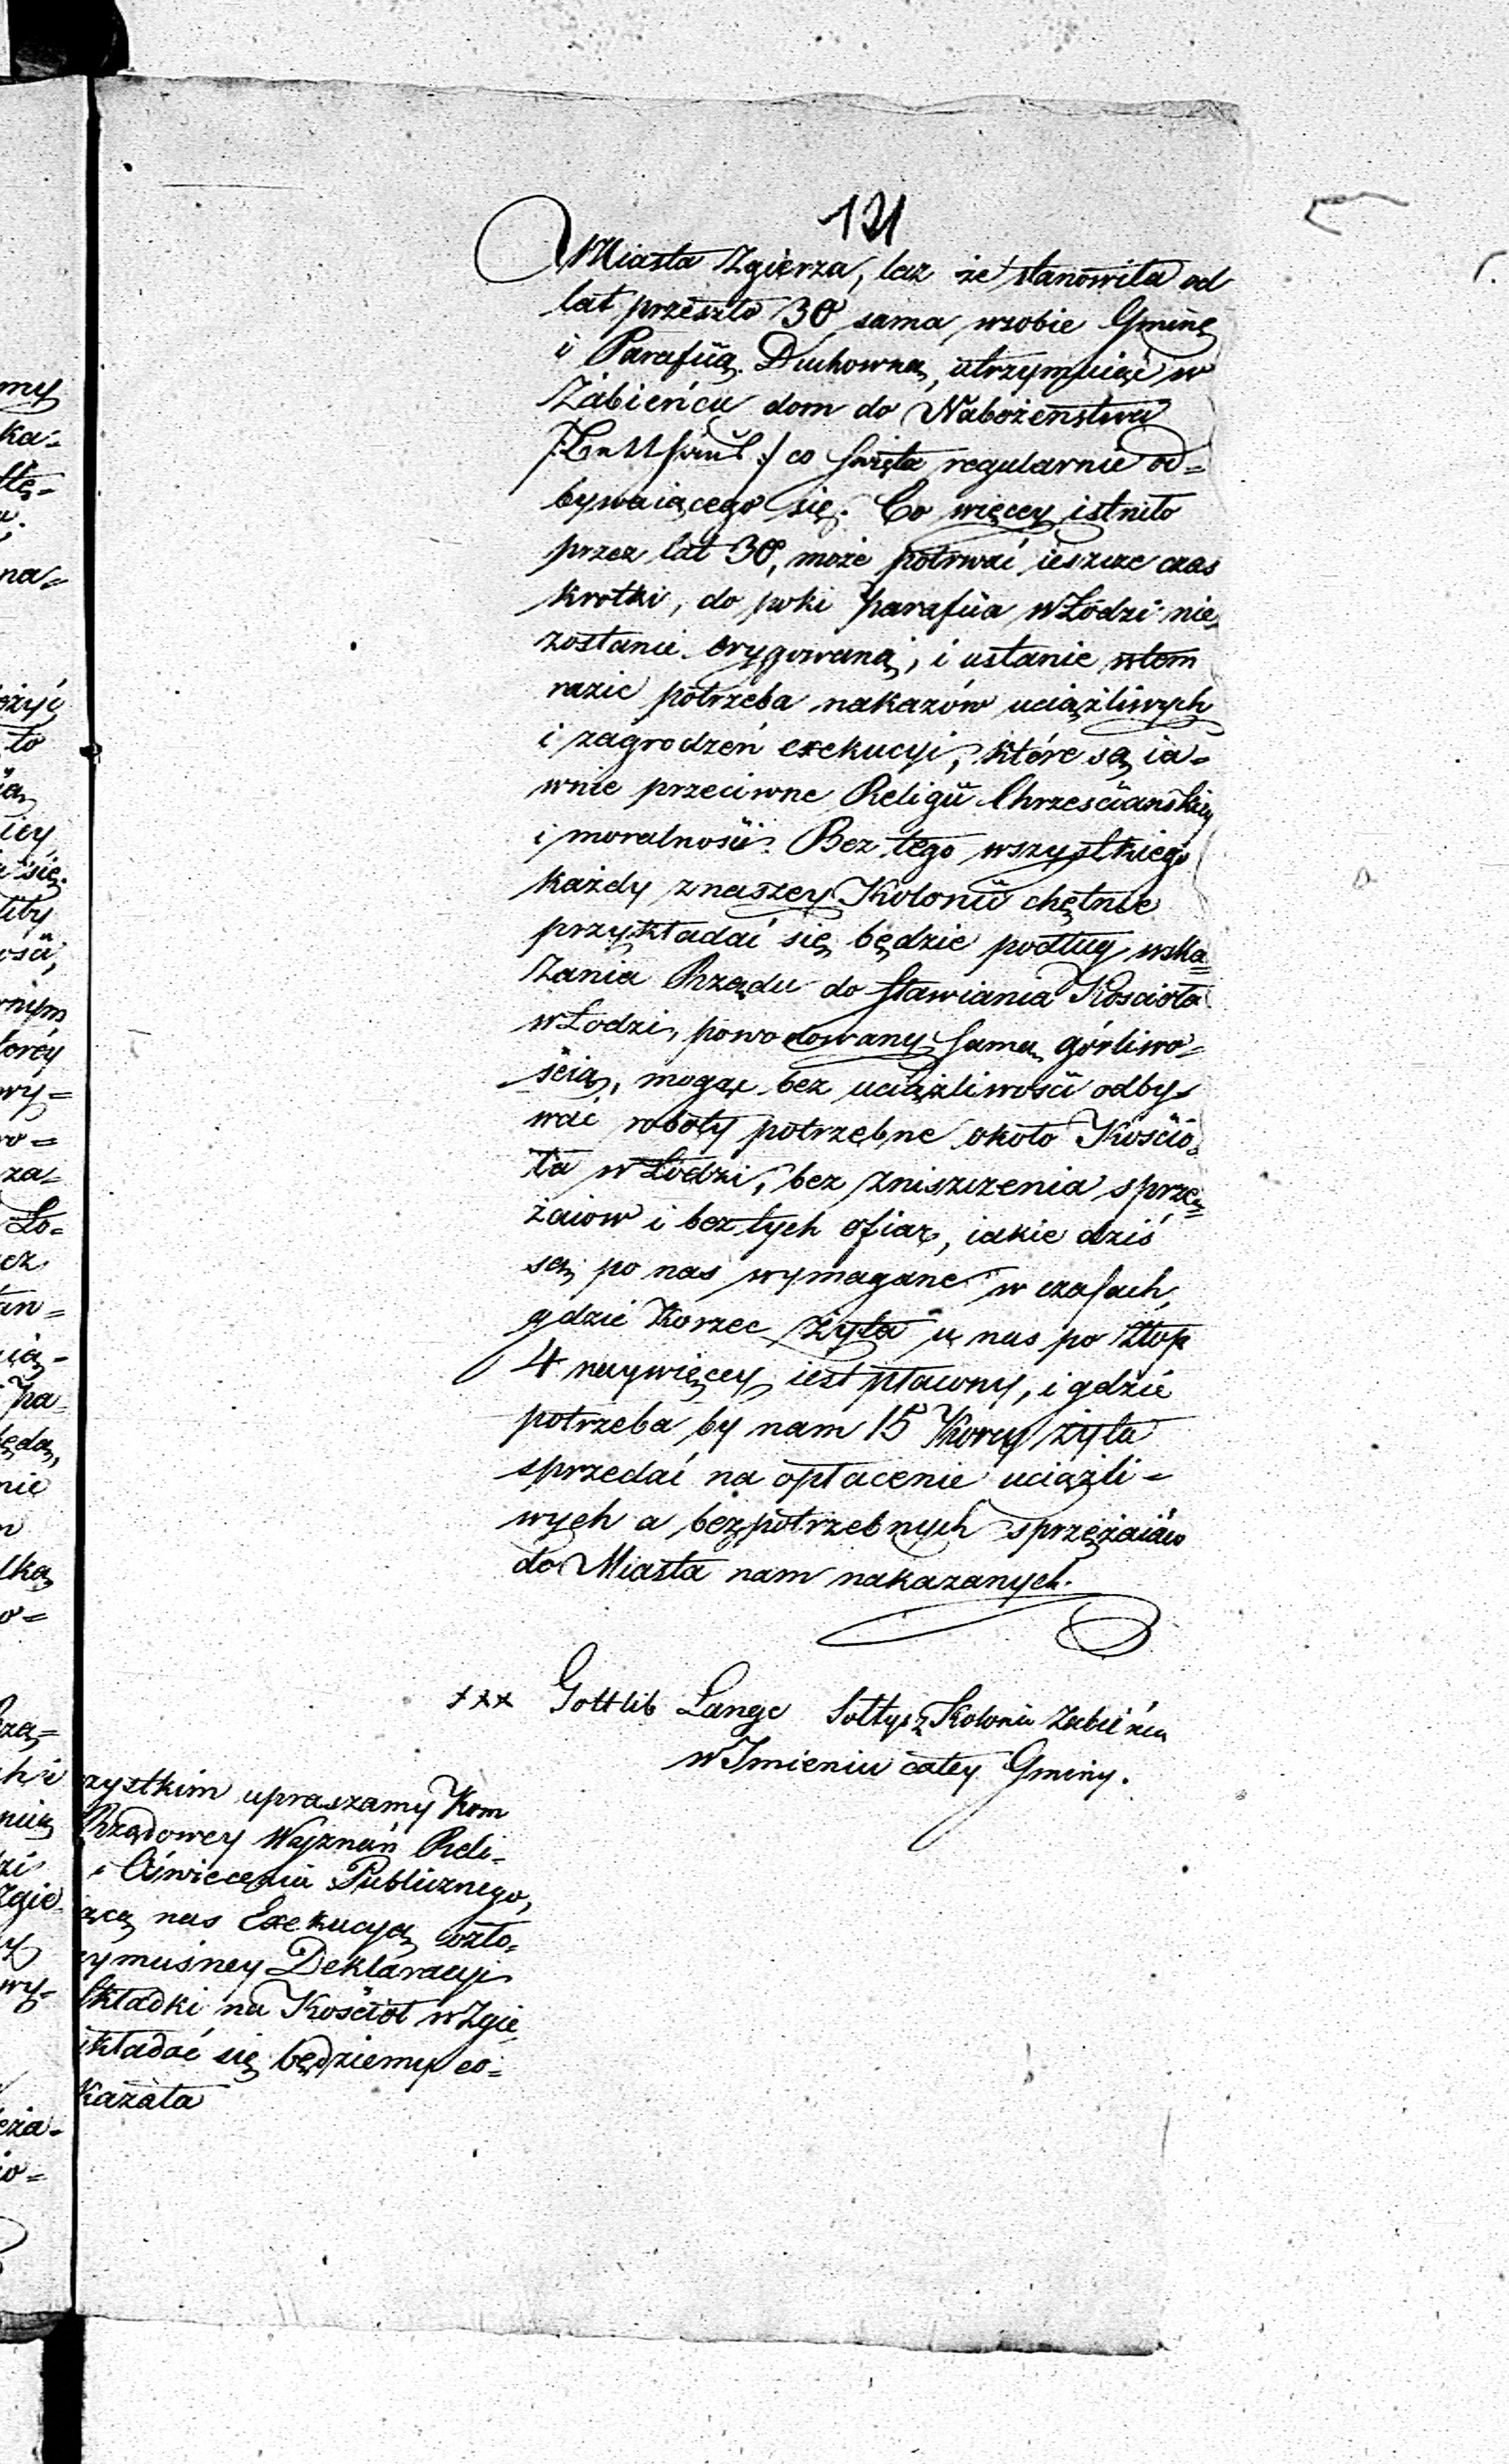 121
Miasta Zgierza, lecz że stanowiła od
lat przeszło 30 sama w sobie Gminę
i Parafiią Duchowną, utrzymuiąc w
Żabieńcu dom do Nabożeństwa
co święta regularnie od=
bywaiącego się. Co więcey istniło
przez lat 30, może potrwać ieszcze czas
krotki, do poki parafiia w Łodzi nie
zostanie erygowaną, i ustanie wtem
razie potrzeba nakazów uciążliwych
i zagrodzeń exekucyi, które są ia=
wnie przeciwne Religii Chrześciańskiey
i moralności. Bez tego wszystkiego
każdy z naszey Kolonii chętnie
przykładać się będzie podług wska=
zania Rządu do stawiania Kościoła
w Łodzi, powodowany samą górliwo=
ścią, mogąc bez uciążliwości odby=
wać roboty potrzebne około Kościo=
ła w Łodzi, bez zniszczenia sprzę=
żaiow i bez tych ofiar, iakie dziś
są po nas wymagane w czasach,
gdzie Korzec żyta u nas po Złop
4 naywięcey iest pławny, i gdzie
potrzeba by nam 15 Korcy żyta
sprzedać na opłacenie uciążli=
wych a bezpotrzebnych sprzężaiów
do Miasta nam nakazanych.
xxx Gottlib Lange Sołtys z Kolonii Żabieńca
w Imieniu całey Gminy.
zystkim upraszamy Kom
Rządowey Wyznań Reli=
i Oświecenia Publicznego,
ącą nas Exekucyą
ymusney Deklaracyi
składki na Kościoł w Zgie=
kładać się będziemy co=
kazała